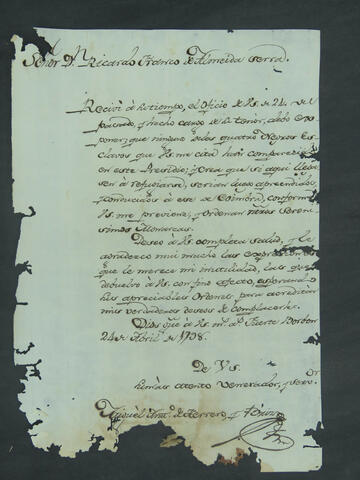 Señor Dn. Ricardo Franco de Almeida Serra.
Recivi à su tiempo, el Oficio de Vs. de 24 de
pasado, y hecho cargo de su tenor, debo ex
poner, que ninguno de los quatro Negros Es
clavos que Vs. me cita han comparecido
en este Presidio; y crea que si aqui llega
sen à refugiarse, serian luego aprendidos
y conducidos à ese de Coimbra, conforme
Vs. me previene, y Ordenan ntros Seren
simos Monarcas.
Deseo à Vs. completa salud, y le
agradezco mui mucho las expresiones
que le merece mi inutilidad, las que
debuelvo à Vs. con fino efecto, esperando
sus apreciables Ordenes para acreditar
mis verdaderos deseos de complacerle.
Dios gue. à Vs. ms. as. Fuerte Borbon
24 de Abril de 1798.
De V. S.
su mas atento Venerador, y serv.or
Miguel Ant.o de Herrero y